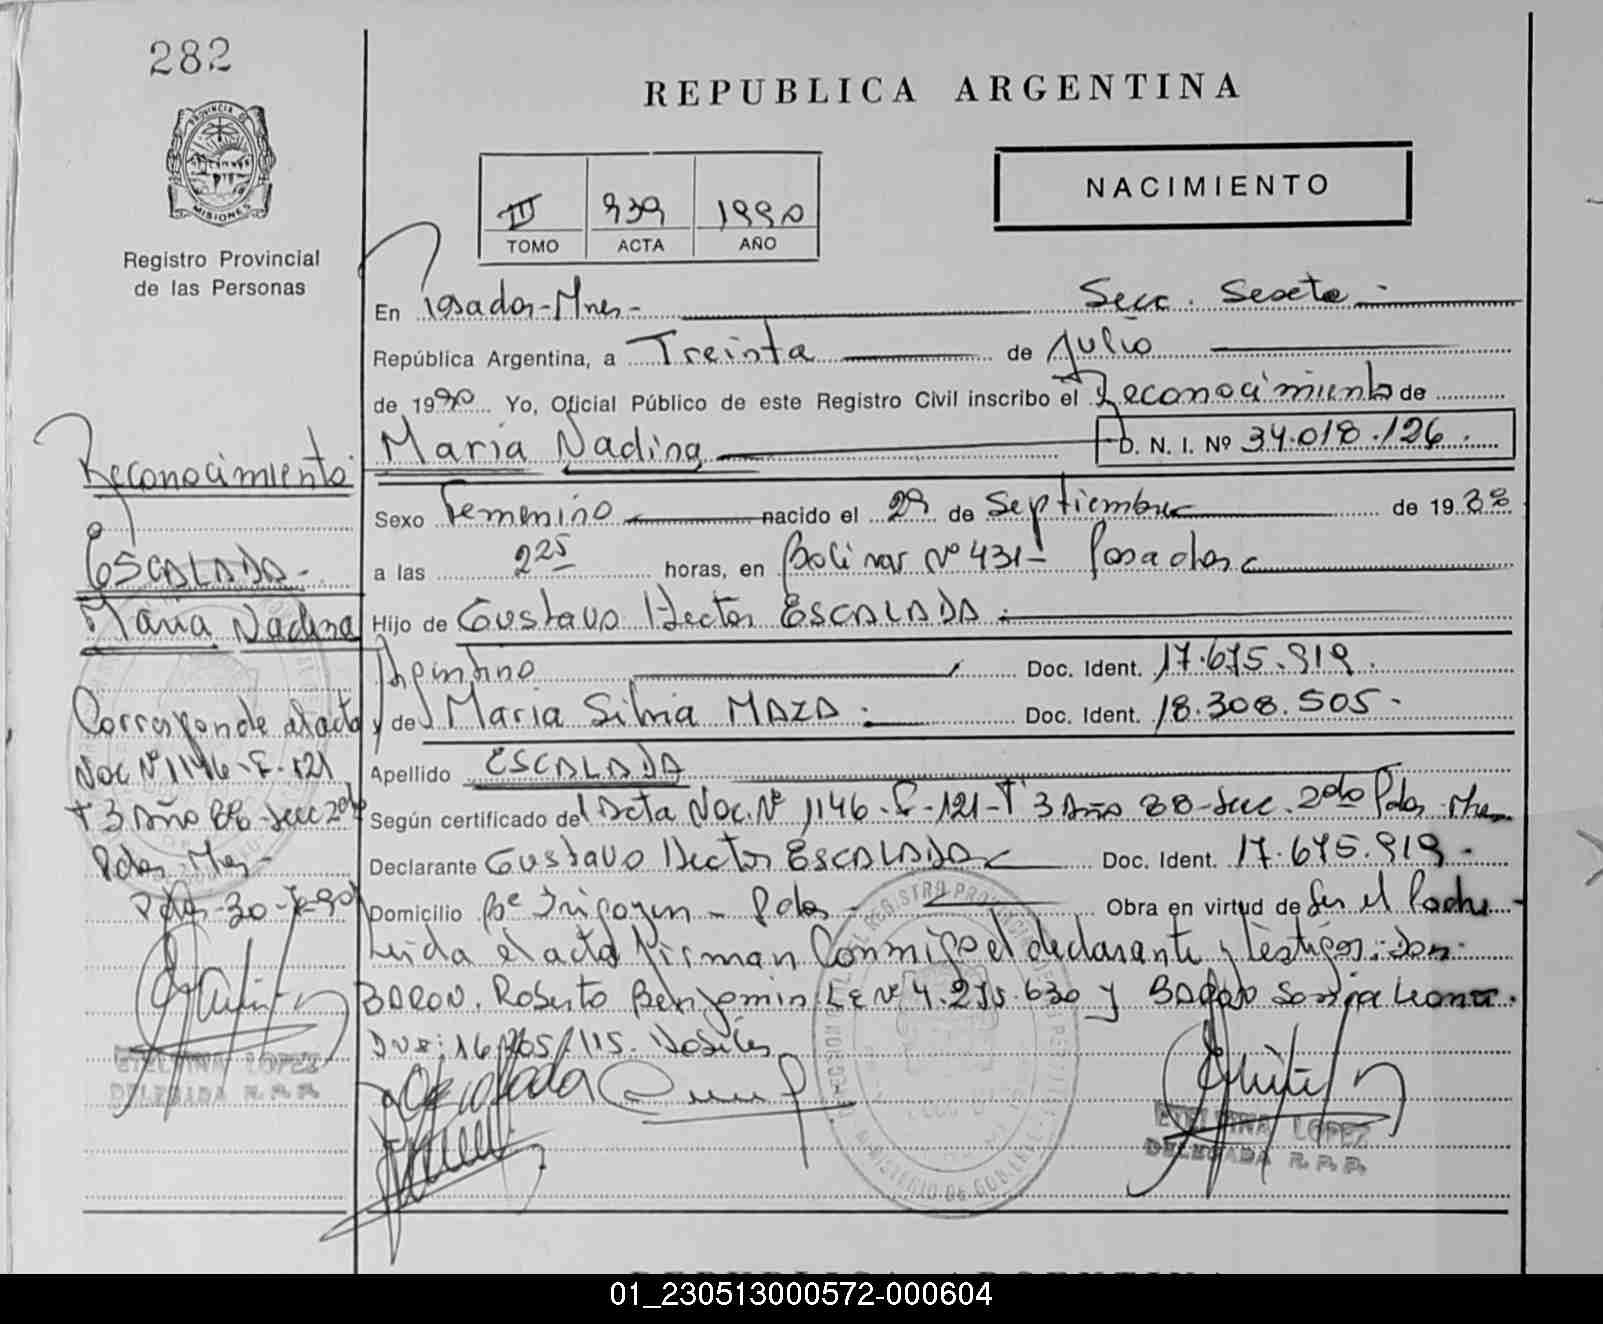 282
PROVINCIA DE
MISIONES
Registro Provincial
de las Personas
REPUBLICA ARGENTINA
NACIMIENTO
III 939 1990
TOMO ACTA AÑO
En Posadas-Mnes- Secc. Sexta
República Argentina, a Treinta de Julio
de 1990 Yo, Oficial Público de este Registro Civil inscribo el Reconocimiento de
María Nadina D. N. I. Nº 34.018.126.
Sexo Femenino nacido el 29 de Septiembre de 1988
a las 225 horas, en Bolivar Nº 431- Posadas
Hijo de Gustavo Hector ESCALADA
Argentino Doc. Ident. 17.675.919.
y de Maria Silvia MAZA. Doc. Ident. 18.308.505-
Apellido ESCALADA
Según certificado del Acta Nac. Nº 1146-F-121-Tº 3 Año 88-Secc. 2da Pdas-Mnes
Declarante Gustavo Hector ESCALADA Doc. Ident. 17.675.919.
Domicilio Bº Irigoyen - Pdas- Obra en virtud de Ser el Padre
Leida el acta firman Conmigo el declarante y testigos: Don:
BARON, Roberto Benjamin LE Nº 4.275.630 y Sonia
Reconocimiento
ESCALADA-
María Nadina
Corresponde al acta
Nac Nº 1146-F-121
Tº 3 Año 88-Secc 2da
Pdas-Mnes-
Pdas-30-7-90
ETELVINA LOPEZ
DELEGADA R.P.P.
ETELVINA LOPEZ
DELEGADA R.P.P.
01_230513000572-000604